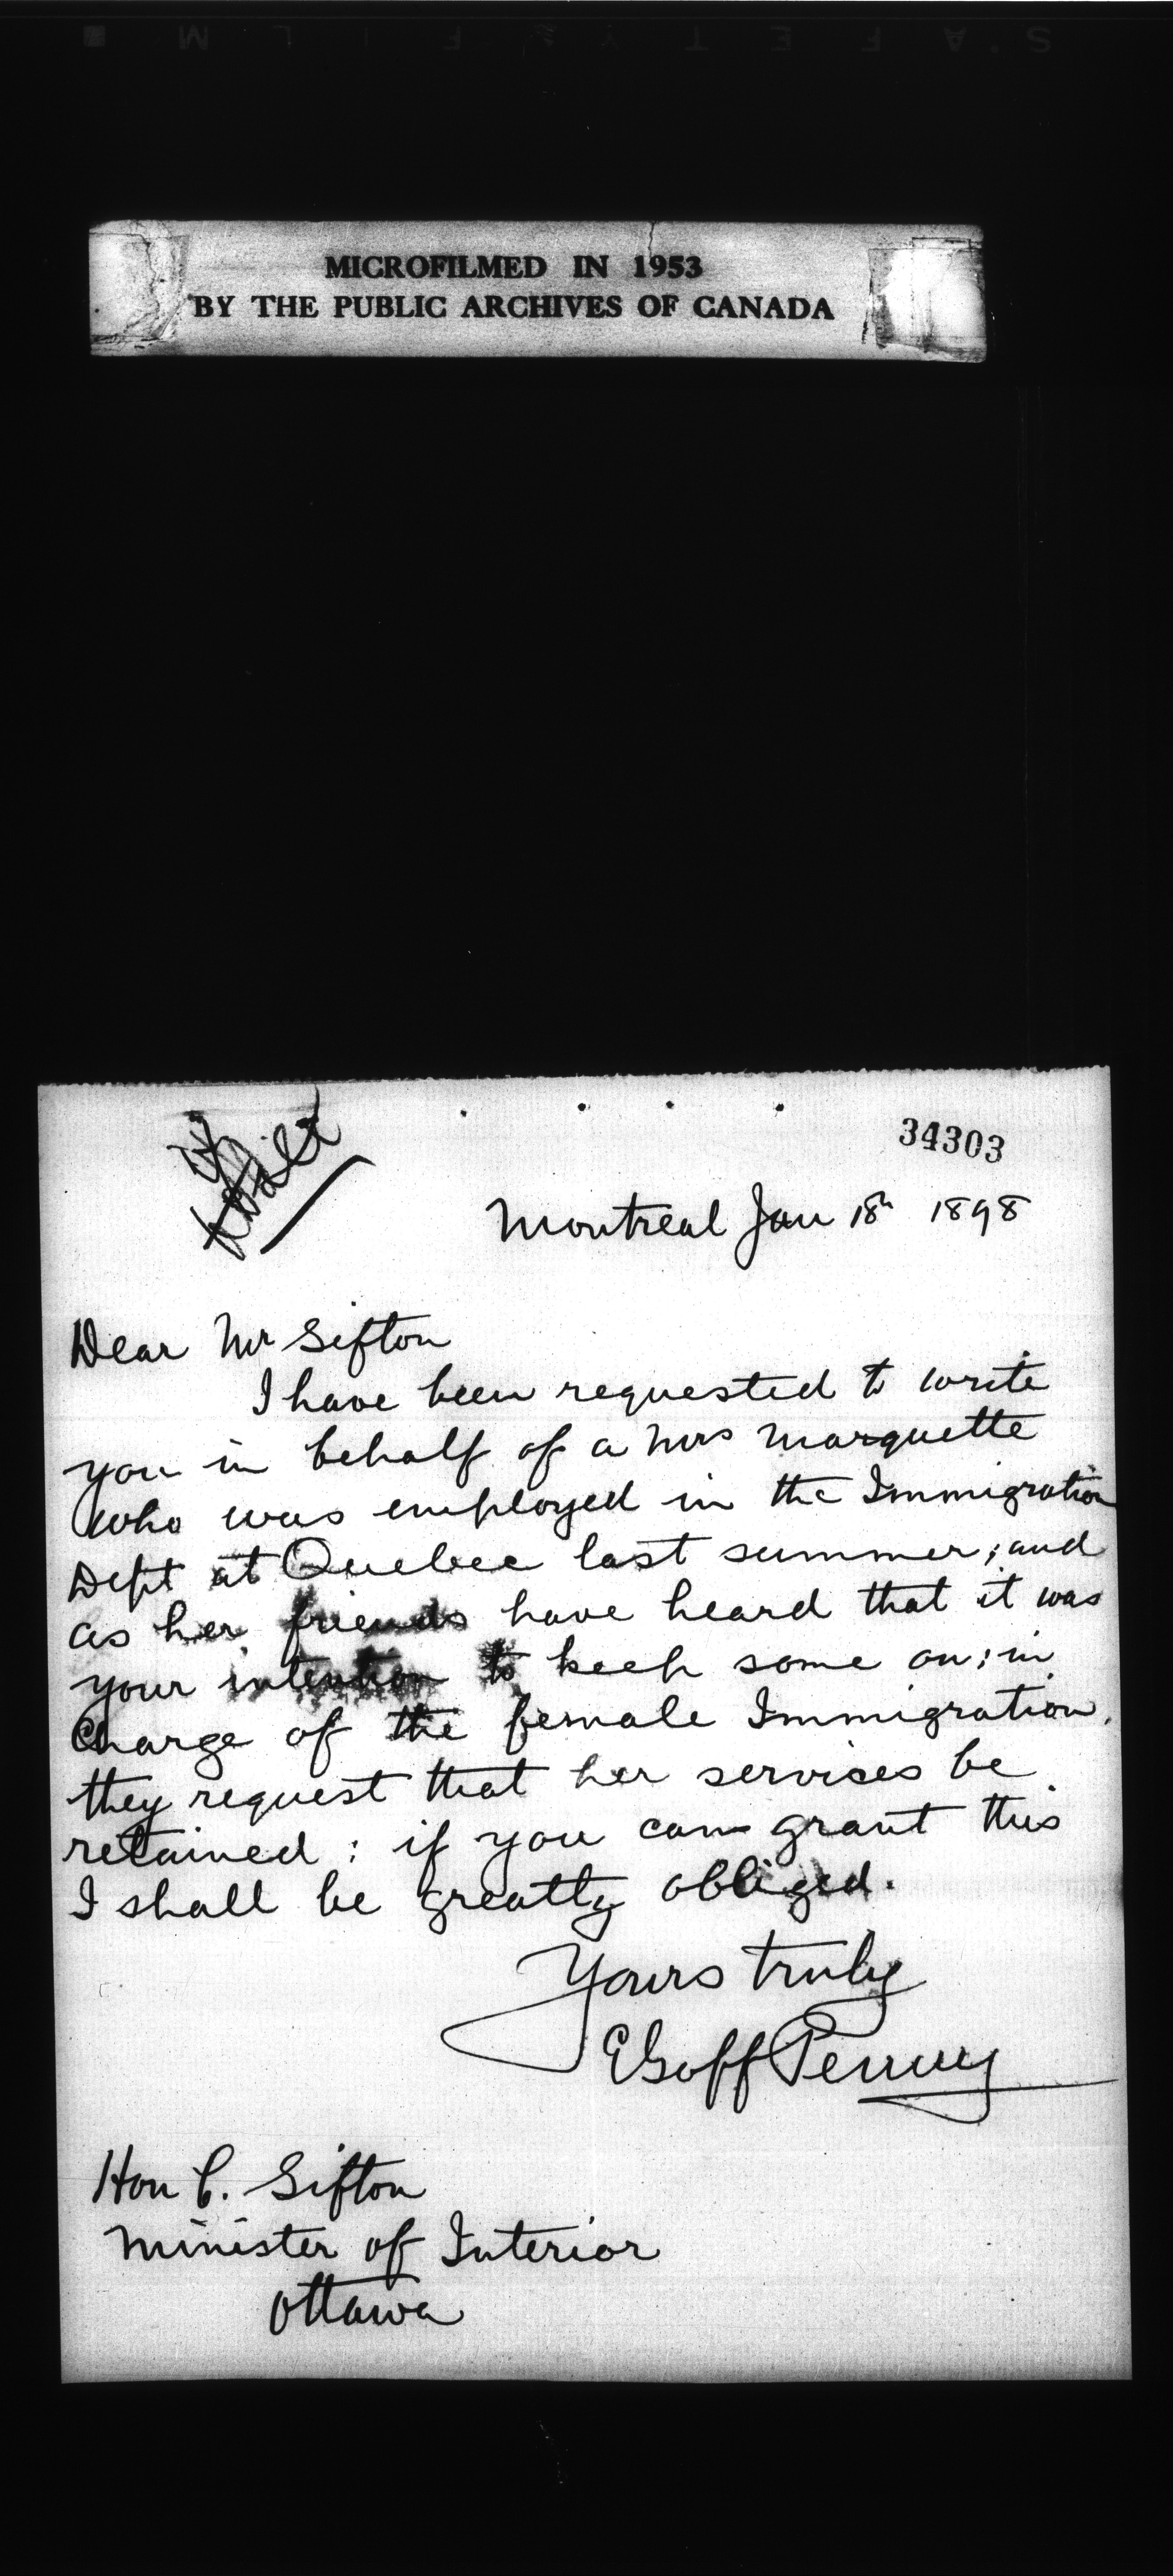 SAFETY FILM
MICROFILMED IN 1953
BY THE PUBLIC ARCHIVES OF CANADA
34303
Montreal Jan 18th 1898
Dear Mr Sifton
I have been requested to write
you in behalf of a Mrs Marquette
who was employed in the Immigration
Dept at Quebec last summer; and
as her friends have heard that it was
your intention to keep some on; in
charge of the female Immigration,
they request that her services be
retained: if you can grant this
I shall be greatly obliged.
Yours truly
E Goff Penny
Hon C. Sifton
Minister of Interior
Ottawa